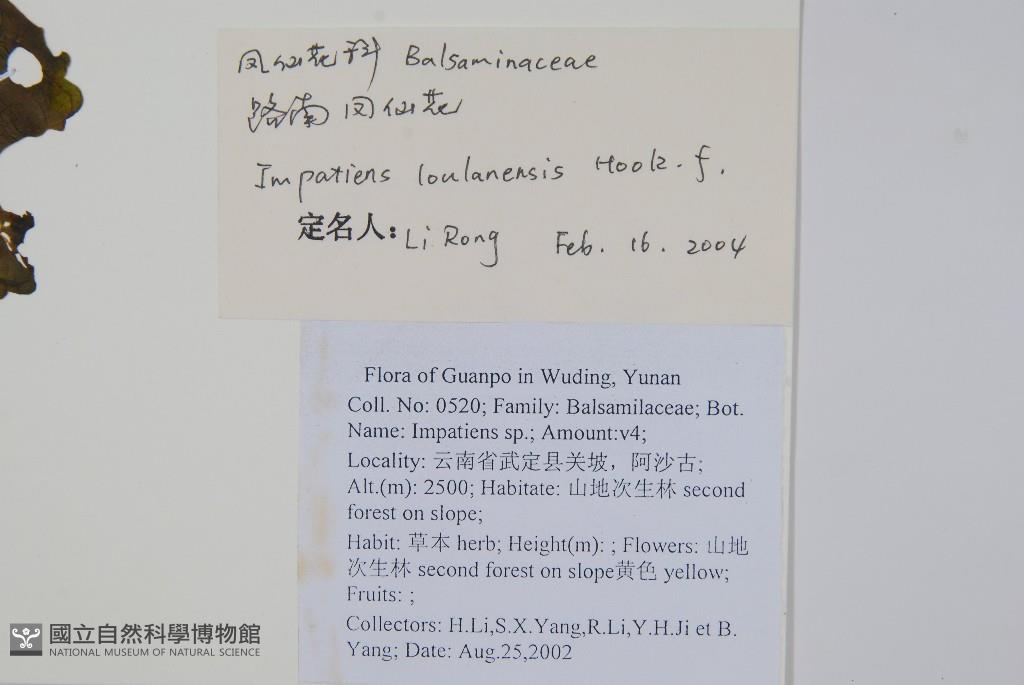 凤仙花科 Balsaminaceae
路南凤仙花
Impatiens loulanensis Hook. f.
定名人: Li Rong Feb. 16. 2004
Flora of Guanpo in Wuding, Yunan
Coll. No: 0520; Family: Balsamilaceae; Bot.
Name: Impatiens sp.; Amount:v4;
Locality: 云南省武定县关坡，阿沙古;
Alt.(m): 2500; Habitate: 山地次生林 second
forest on slope;
Habit: 草本 herb; Height(m): ; Flowers: 山地
次生林 second forest on slope黄色 yellow;
Fruits: ;
Collectors: H.Li,S.X.Yang,R.Li,Y.H.Ji et B.
Yang; Date: Aug.25,2002
國立自然科學博物館
NATIONAL MUSEUM OF NATURAL SCIENCE